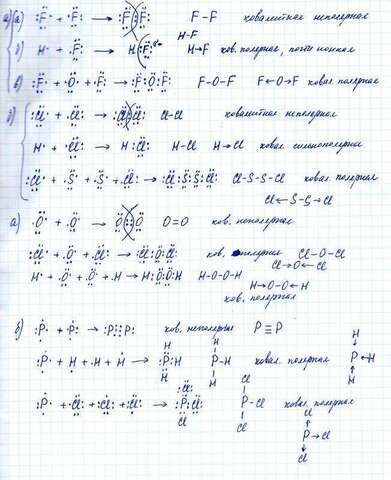 а) (а) :F̤̈· + ·F̤̈: → :F̤̈:F̤̈: F – F ковалентная неполярная
б) H· + ·F̤̈: → H:F̤̈: H-F H→F ков. полярная, почти ионная
в) :F̤̈· + ·Ö̤· + ·F̤̈: → :F̤̈:Ö̤:F̤̈: F–O–F F←O→F ковал. полярная
б) :C̤̈l· + ·C̤̈l: → :C̤̈l:C̤̈l: Cl–Cl ковалентная неполярная
H· + ·C̤̈l: → H:C̤̈l: H–Cl H→Cl ковал. сильнополярная
:C̤̈l· + ·S̤̈· + ·S̤̈· + ·C̤̈l: → :C̤̈l:S̤̈:S̤̈:C̤̈l: Cl–S–S–Cl ковал. полярная
Cl←S–S→Cl
а) ·Ö̤· + ·Ö̤· → Ö::Ö O=O ков. неполярная
:C̤̈l· + ·Ö̤· + ·C̤̈l: → :C̤̈l:Ö̤:C̤̈l: ков. полярная Cl–O–Cl
Cl→O←Cl
H· + ·Ö̤· + ·Ö̤· + ·H → H:Ö̤:Ö̤:H H–O–O–H
H→O–O←H
ков. полярная
в) :Ṗ· + ·Ṗ: → :P⋮⋮P: ков. неполярные P≡P
:Ṗ· + H· + ·H + ·H → :P̈:H H P–H H H ковал. полярная H P←H H
:Ṗ· + ·C̤̈l: + ·C̤̈l: + ·C̤̈l: → :P̈:C̤̈l: :C̈l: Cl P–Cl Cl Cl ковал. полярная Cl P→Cl Cl